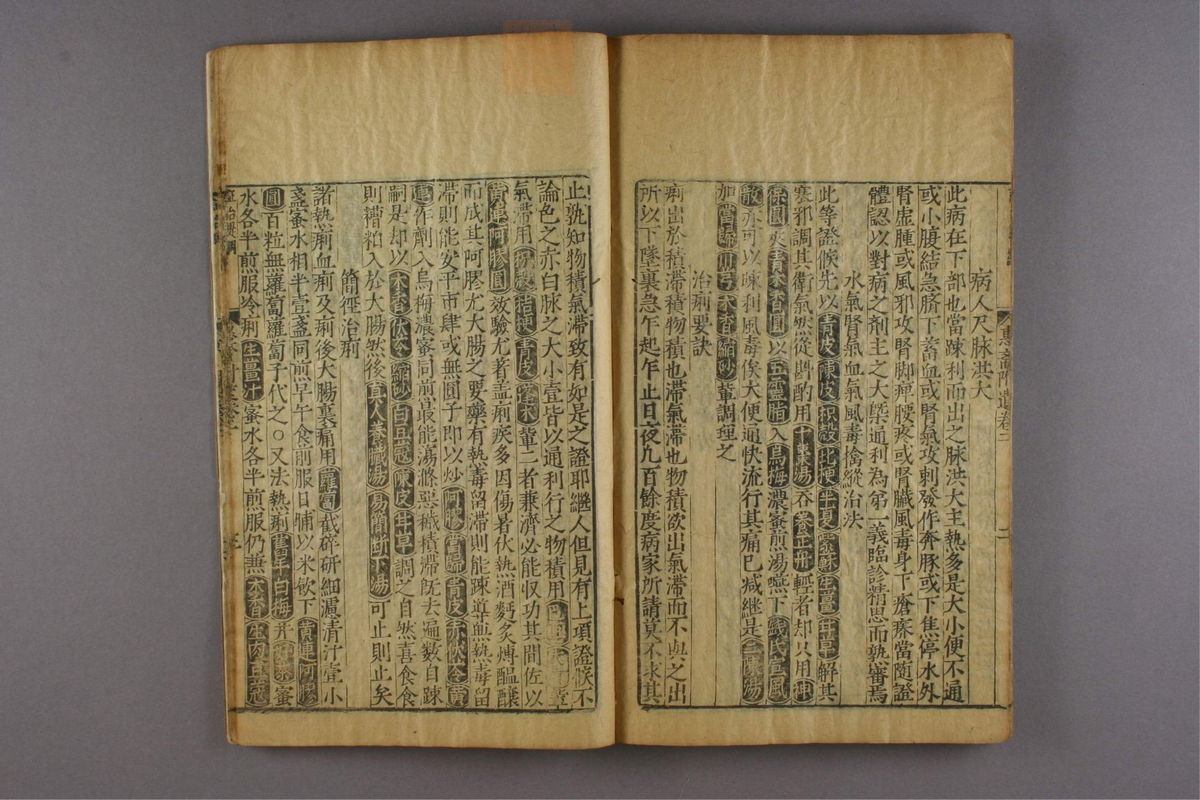 病人尺脉洪大
此病在下部也當踈利而出之脉洪大主熱多是大小便不通
或小腹結急臍下蓄血或腎氣攻刺發作奔豚或下焦停水外
腎虚腫或風邪攻腎脚膝腰疼或腎臟風毒身下瘡痒當隨證
體認以對病之劑主之大槩通利為第一義臨診精思而熟審焉
水氣腎氣血氣風毒擒縱治法
此等證候先以青皮陳皮枳殻桔梗半夏紫蘇生薑甘草解其
寒邪調其衛氣然從斟酌用十棗湯吞養正丹輕者却只用神
保圓夾青木香圓以五靈脂入烏梅濃蜜煎湯嚥下錢氏宣風
散亦可以踈利風毒俟大便通快流行其痛已减継是二陳湯
加當歸川芎木香縮砂輩調理之
治痢要訣
痢出於積滯積物積也滯氣滯也物積欲出氣滯而不與之出
所以下墜裏急乍起乍止日夜凡百餘度病家所請莫不求其
止孰知物積氣滯致有如是之證耶継人但見有上項證候不
論色之赤白脉之大小壹皆以通利行之物積用巴
氣滯用枳殻桔梗青皮蓬术輩二者兼濟必能収功其間佐以
黄連阿膠圓效驗尤著盖痢疾多因傷者伏熱酒麫炙煿醖釀
而成其阿膠尤大腸之要藥有熱毒留滯則能踈導無熱毒留
滯則能安平市肆或無圓子即以炒阿膠當歸青皮赤茯苓黄
連作劑入烏梅濃蜜同煎最能蕩滌惡穢積滯既去遍數自踈
嗣是却以木香茯苓縮砂白豆蔻陳皮甘草調之自然喜食食
則糟粕入於大腸然後真人養臟湯易簡断下湯可止則止矣
簡徑治痢
諸熱痢血痢及痢後大腸裏痛用蘿蔔截碎研細濾清汁壹小
盞蜜水相半壹盞同煎早午食前服日晡以米飲下黄連阿膠
圓百粒無蘿蔔蘿蔔子代之○又法熱痢舊年白梅并好茶蜜
水各半煎服冷痢生薑汁蜜水各半煎服仍兼木香生肉豆蔻